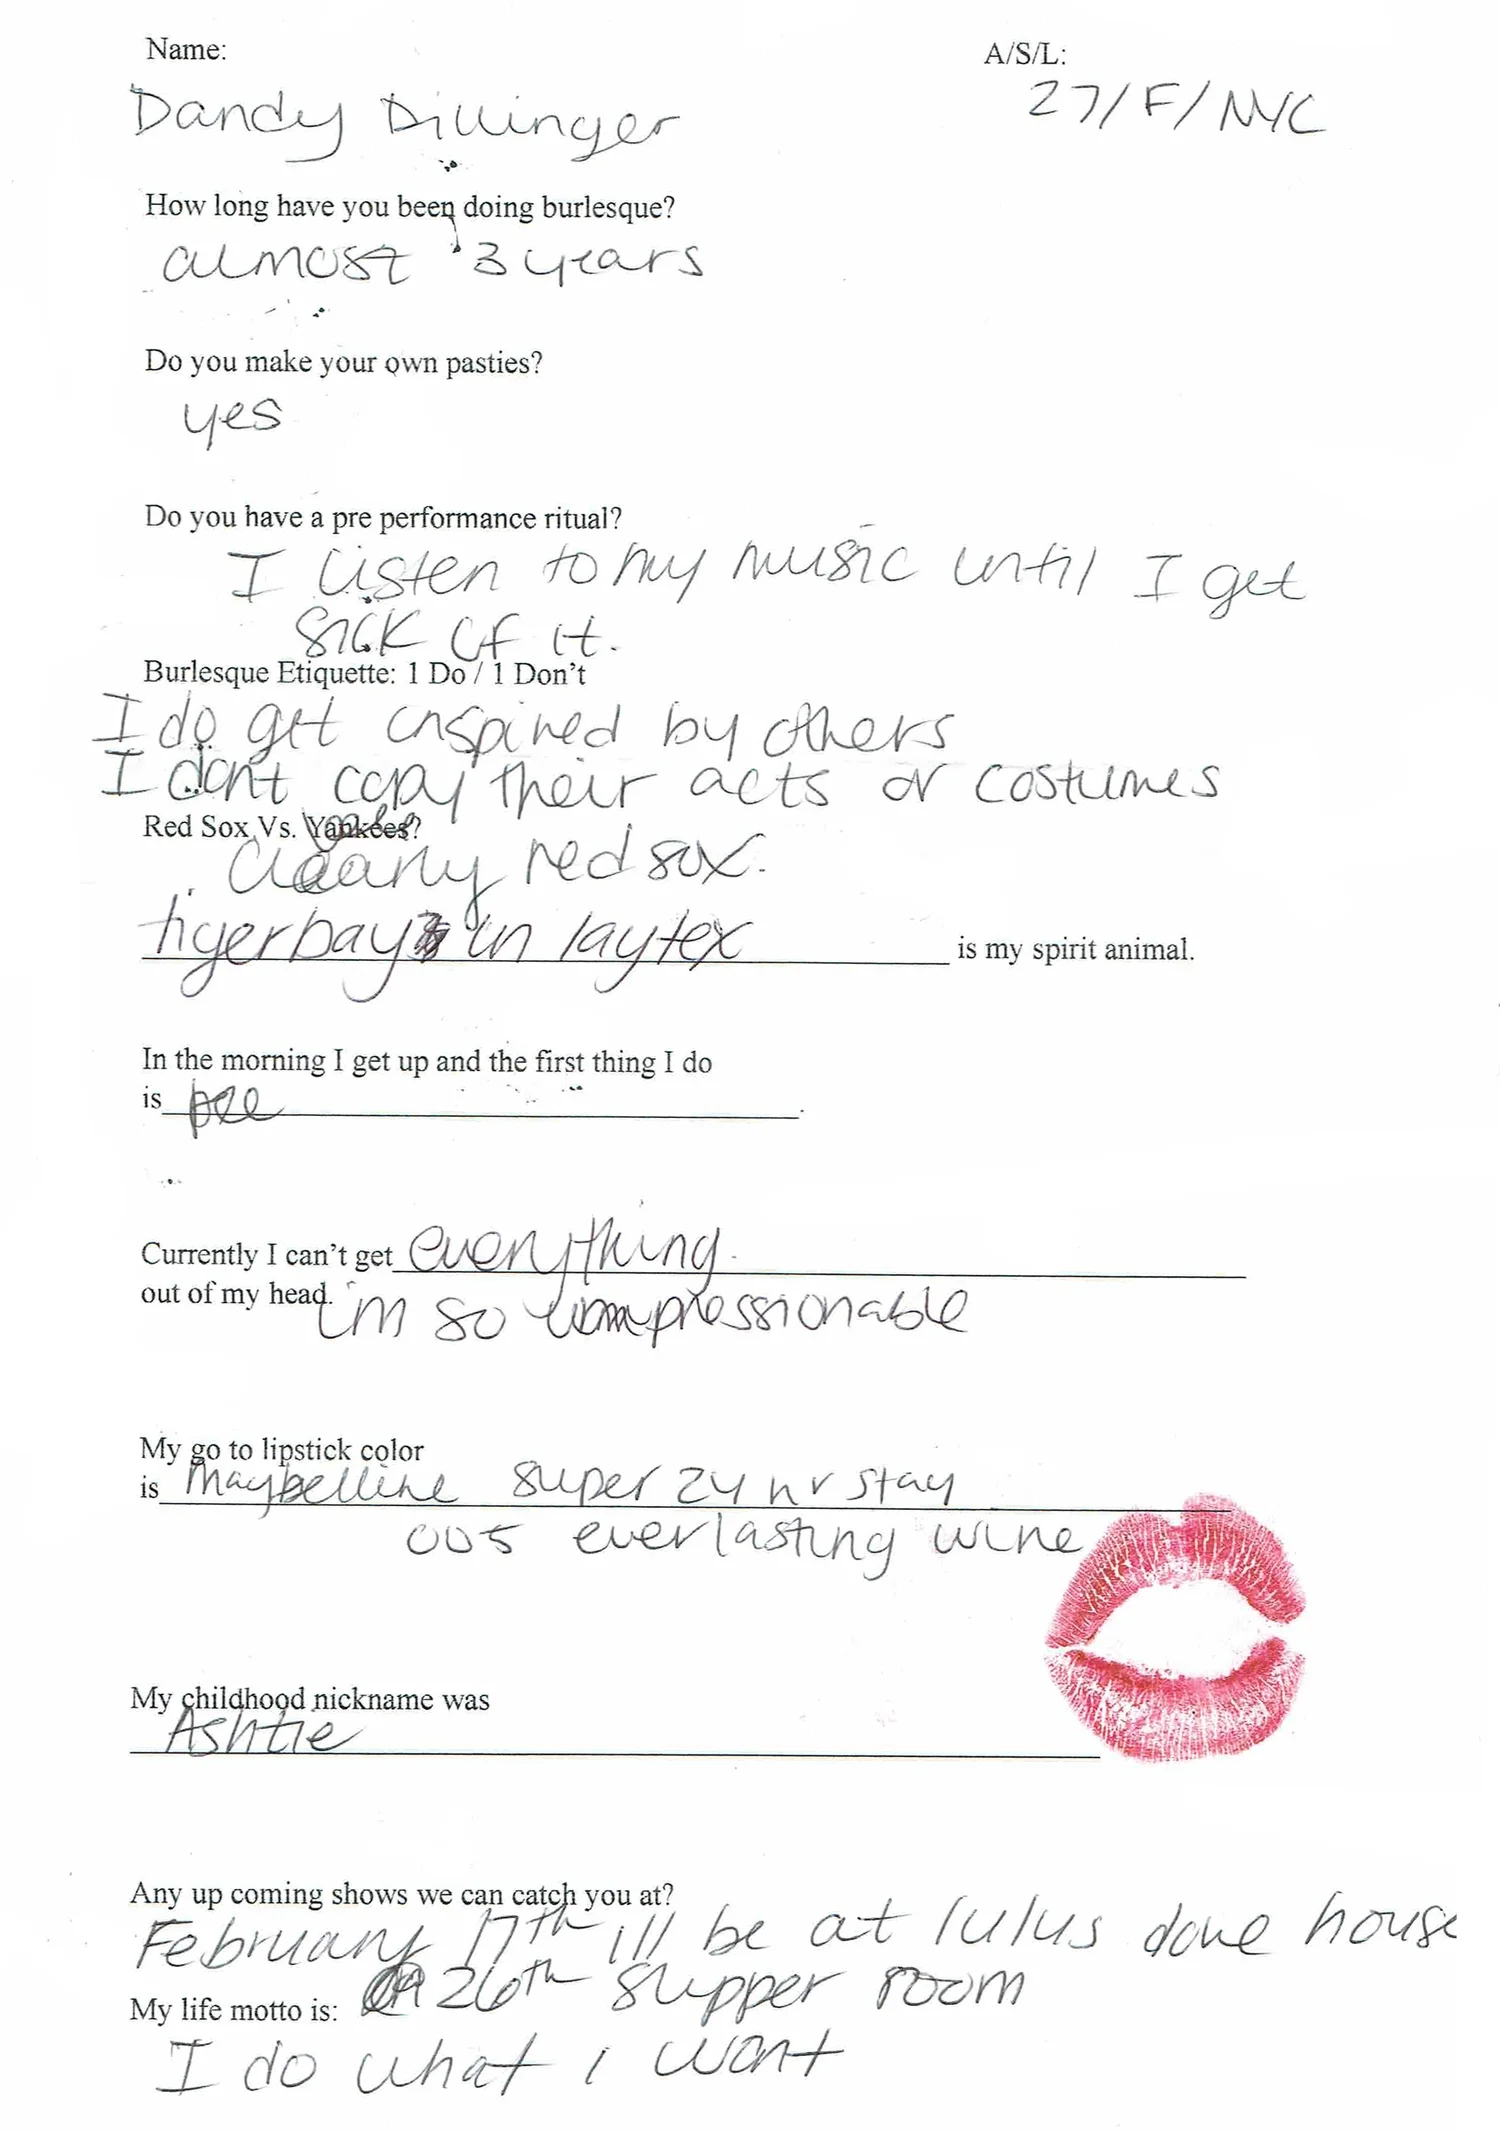 Name:
A/S/L:
Dandy Dillinger
27/F/NYC
How long have you been doing burlesque?
almost 3 years
Do you make your own pasties?
yes
Do you have a pre performance ritual?
I listen to my music until I get
sick of it.
Burlesque Etiquette: 1 Do / 1 Don't
I do get inspired by others
I dont copy their acts or costumes
Red Sox Vs. Yankees?
Clearly red sox.
tigerbay in laytex is my spirit animal.
In the morning I get up and the first thing I do
is pee.
Currently I can't get everything.
out of my head. I'm so impressionable
My go to lipstick color
is maybelline super 24 hr stay
005 everlasting wine
My childhood nickname was
Ashtie
Any up coming shows we can catch you at?
February 17th ill be at lulus done house
26th supper room
My life motto is:
I do what i want